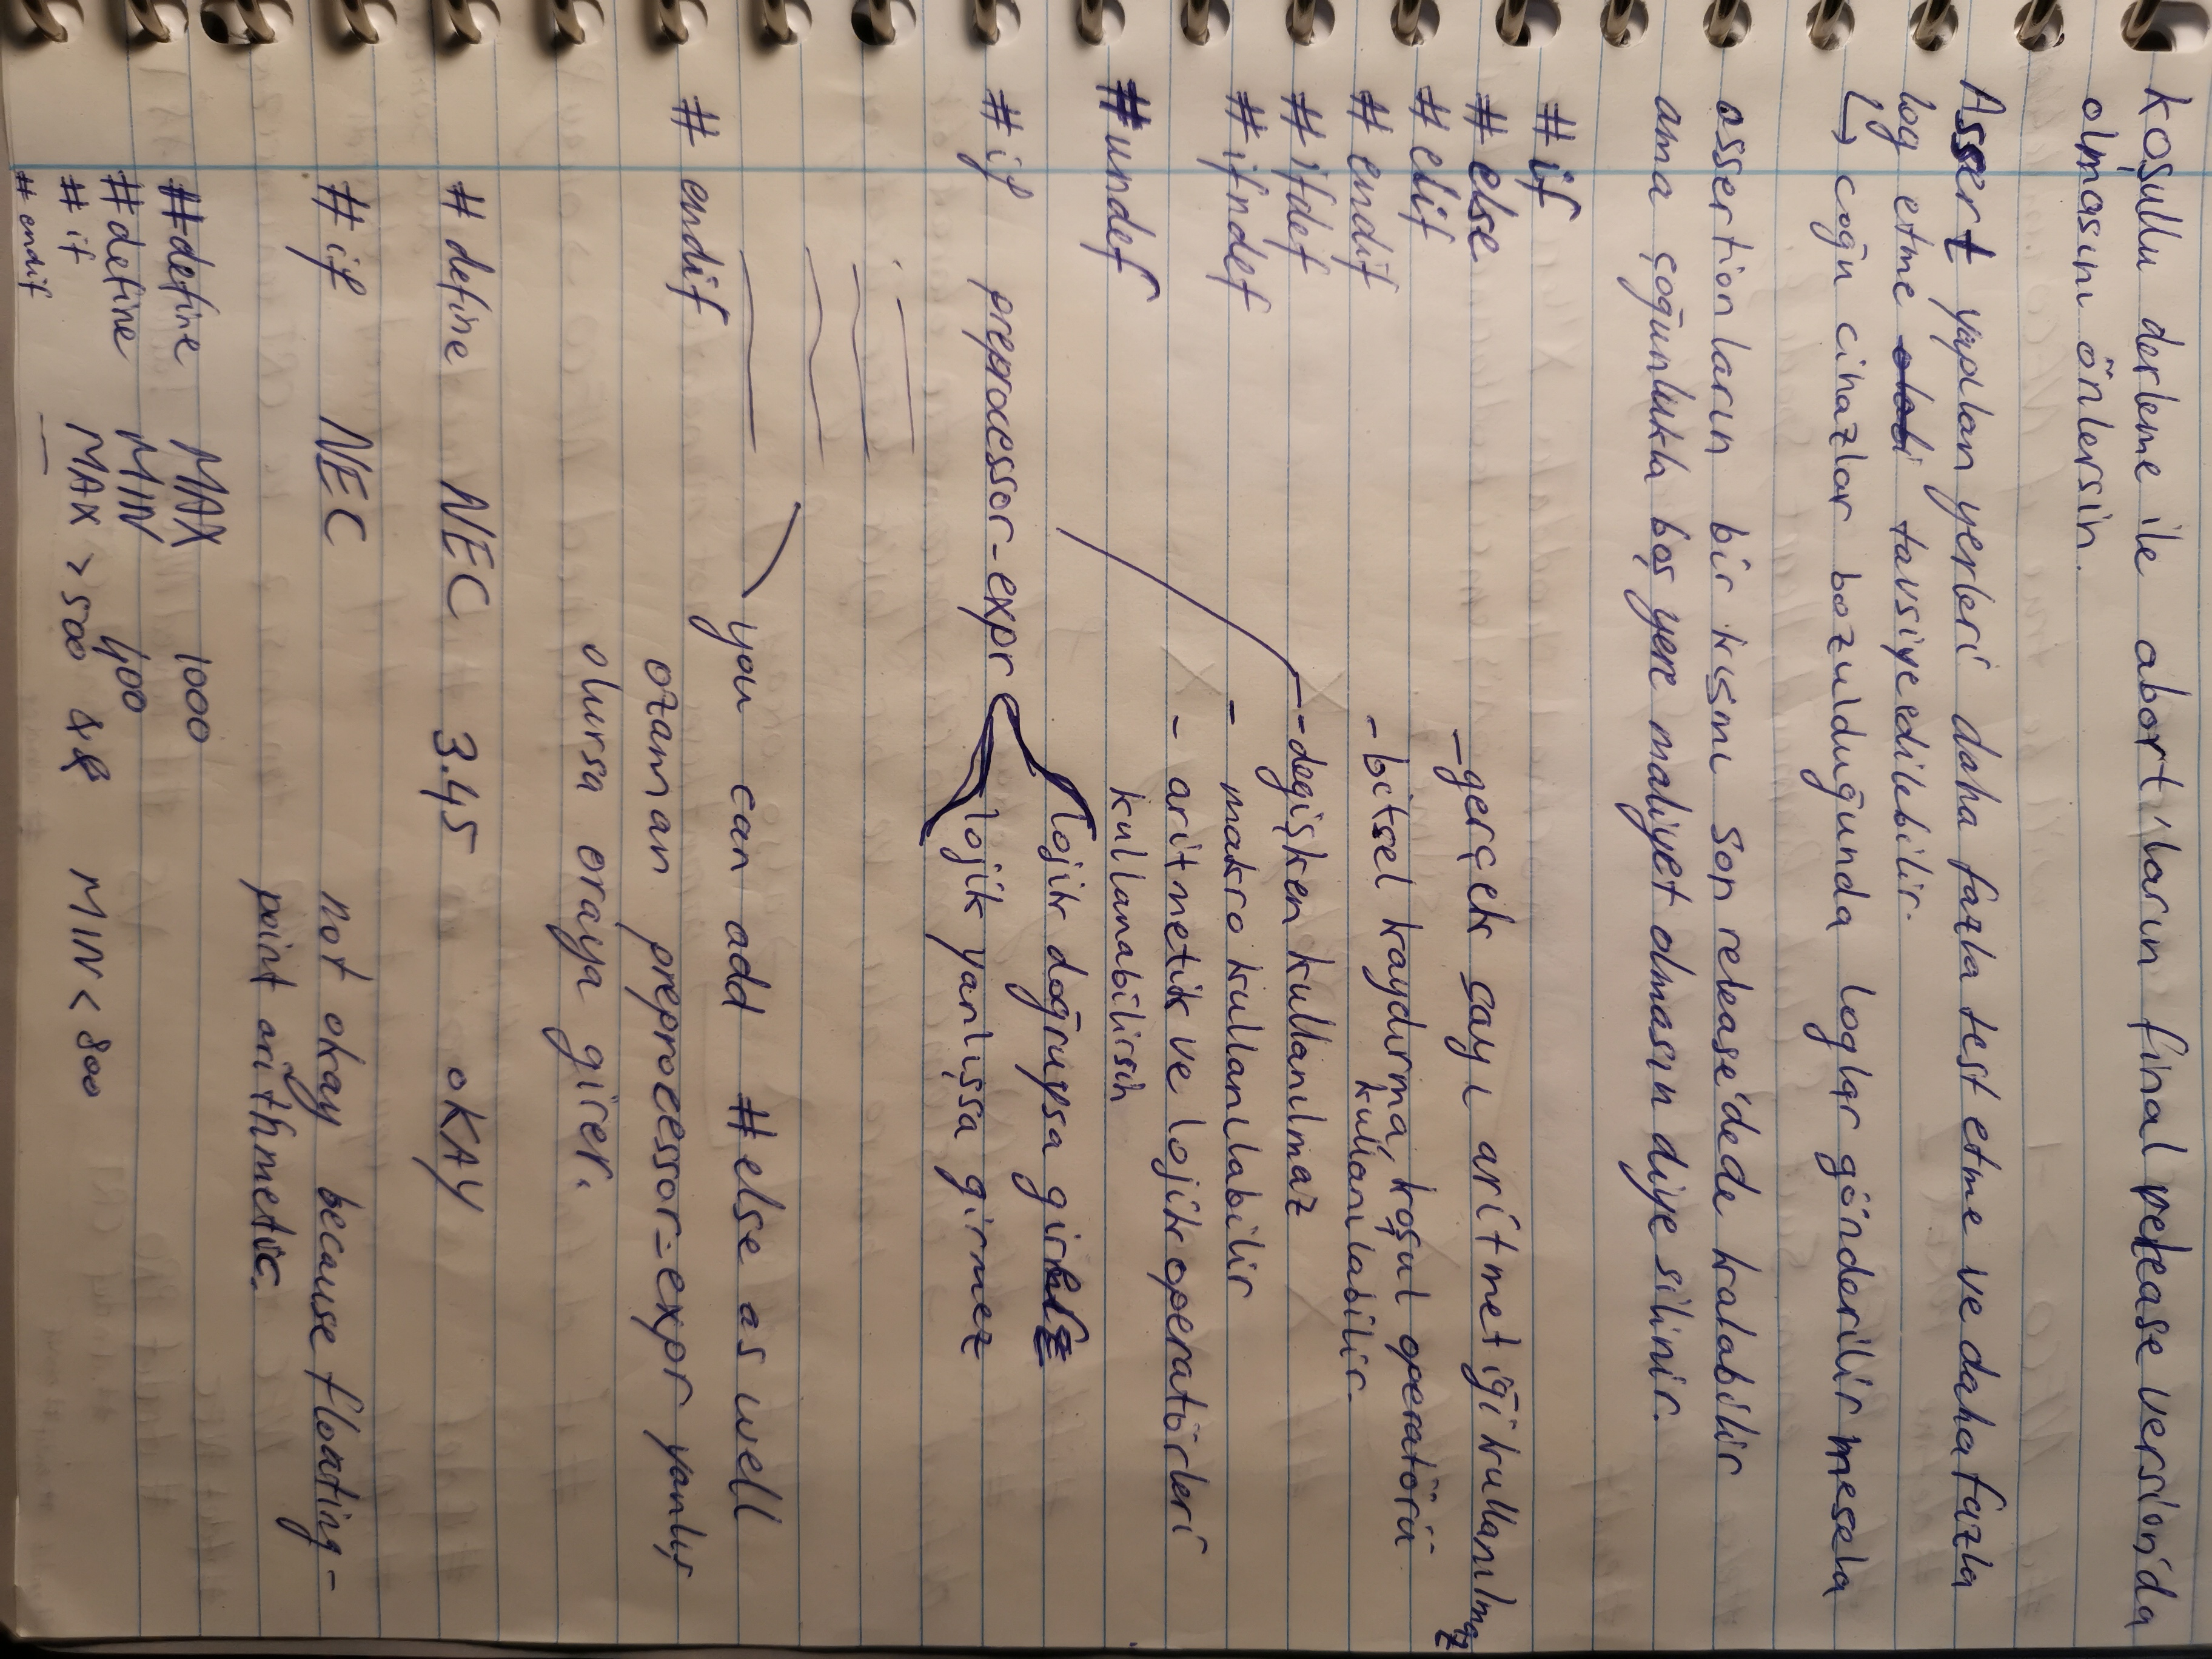 koşullu derleme ile abort'ların final release version'da
olmasını önlersin.
Assert yapılan yerleri daha fazla test etme ve daha fazla
log etme olabi tavsiye edilebilir.
↳ coğu cihazlar bozulduğunda loglar gönderilir mesela
assertionların bir kısmı son release'dede kalabilir
ama çoğunlukla boş yere maliyet olmasın diye silinir.
#if
#else
#elif
#endif
#ifdef
#ifndef
#undef
- gerçek sayı aritmetiği kullanılmaz
- bitsel kaydırma, koşul operatörü
kullanılabilir.
- degişken kullanılmaz
- makro kullanılabilir
- aritmetik ve lojik operatörleri
kullanabilirsin
#if preprocessor-expr
lojik doğruysa girer
lojik yanlışsa girmez
you can add #else as well
# endif
ozaman preprocessor-expr yanlış
olursa oraya girer.
# define NEC 3.45 OKAY
# if NEC not okay because floating-
point arithmetic.
#define MAX 1000
#define MIN 400
# if MAX > 500 && MIN < 800
# endif